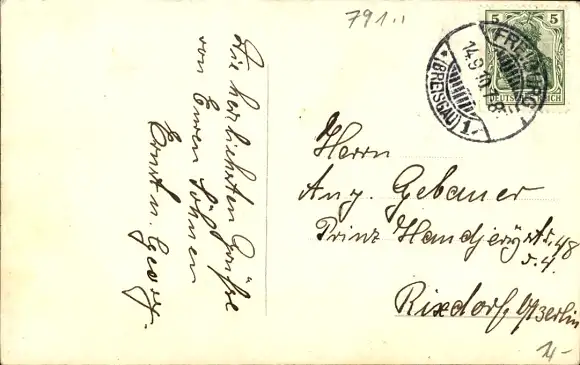 791..
Die herzlichsten Grüße
von Euren Söhnen
Ernst u. Georg.
5 5
DEUTSCHES REICH
FREIBURG
14.9.10.7-8N.
*(BREISGAU) 1.
Herrn
Aug. Gebauer
Prinz Handjerystr. 48
Rixdorf b/Berlin